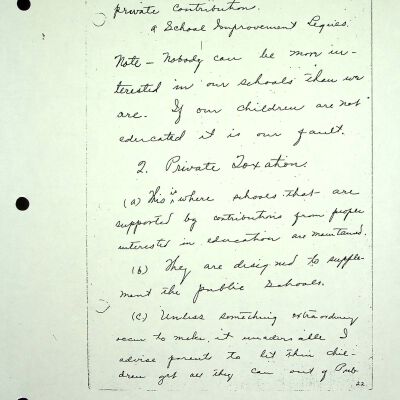 private contribution.
a School Improvement Leagues.
Note – Nobody can be more in-
terested in our schools than we
are. If our children are not
educated it is our fault.
2. Private Taxation.
(a) This is where schools that are
supported by contributions from people
interested in education are maintained.
(b) They are designed to supple-
ment the public schools.
(c) Unless something extraordinary
occur to make it unadvisable I
advise parents to let their chil-
dren get all they can out of Pub-
22